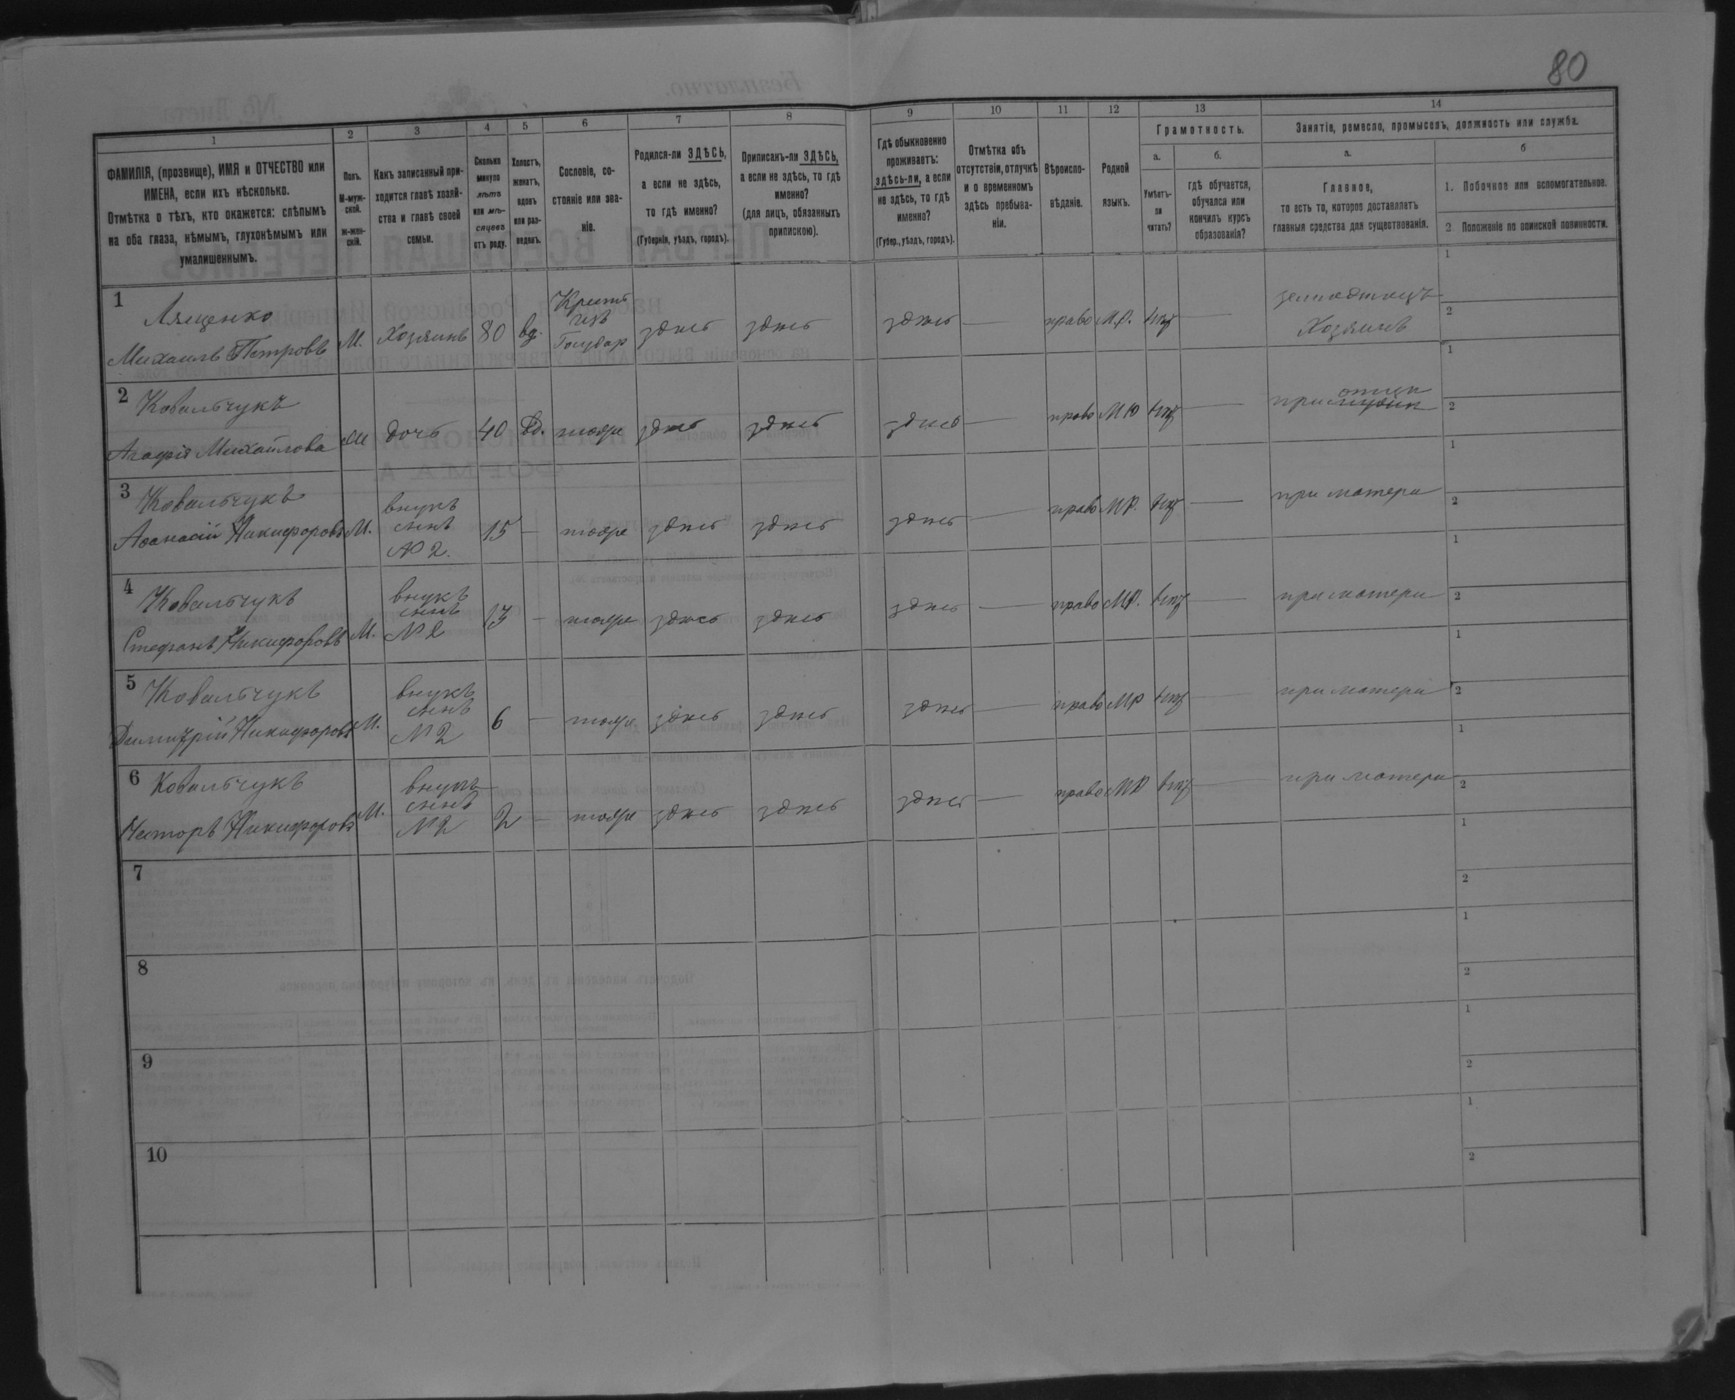 80
1
2
3
4
5
6
7
8
9
10
11
12
13
14
ФАМИЛІЯ, (прозвище), ИМЯ и ОТЧЕСТВО или
ИМЕНА, если ихъ нѣсколько.
Отмѣтка о тѣхъ, кто окажется: слѣпымъ
на оба глаза, нѣмымъ, глухонѣмымъ или
умалишеннымъ.
Полъ.
М-муж-
ской.
Ж-жен-
скій.
Какъ записанный при-
ходится главѣ хозяй-
ства и главѣ своей
семьи.
Сколько
минуло
лѣтъ
или мѣ-
сяцевъ
отъ роду.
Холостъ,
женатъ,
вдовъ
или раз-
веденъ.
Сословіе, со-
стояніе или зва-
ніе.
Родился-ли ЗДѢСЬ,
а если не здѣсь,
то гдѣ именно?
(Губернія, уѣздъ, городъ).
Приписанъ-ли ЗДѢСЬ,
а если не здѣсь, то гдѣ
именно?
(для лицъ, обязанныхъ
припискою).
Гдѣ обыкновенно
проживаетъ:
здѣсь-ли, а если
не здѣсь, то гдѣ
именно?
(Губер., уѣздъ, городъ).
Отмѣтка объ
отсутствіи, отлучкѣ
и о временномъ
здѣсь пребыва-
ніи.
Вѣроиспо-
вѣданіе.
Родной
языкъ.
Грамотность.
а.
Умѣетъ-
ли
читать?
б.
гдѣ обучается,
обучался или
кончилъ курсъ
образованія?
Занятіе, ремесло, промыселъ, должность или служба.
а.
Главное,
то есть то, которое доставляетъ
главныя средства для существованія.
б
1. Побочное или вспомогательное.
2 Положеніе по воинской повинности.
1
Лященко
Михаилъ Петровъ М. Хозяинъ 80 вд. здѣсь здѣсь здѣсь — право М.Р. нѣт —
Хозяинъ
1
2
2
Ковальчукъ
Агафія Михайлова М дочь 40 Вд. тоже здѣсь здѣсь здѣсь — право МР нѣт — при отцѣ
1
2
3
Ковальчукъ
Афанасій Никифоровъ М. внукъ
сынъ
№ 2. 15 — тоже здѣсь здѣсь здѣсь — право МР. нѣт — при матери
1
2
4
Ковальчукъ
Стефанъ Никифоровъ М. внукъ
сынъ
№ 2 13 — тоже здѣсь здѣсь здѣсь — право МР. нѣт — при матери
1
2
5
Ковальчукъ
Димитрій Никифоровъ М. внукъ
сынъ
№ 2 6 — тоже здѣсь здѣсь здѣсь — право МР нѣт — при матери
1
2
6
Ковальчукъ
Несторъ Никифоровъ М. внукъ
сынъ
№ 2 2 — тоже здѣсь здѣсь здѣсь — право МР нѣт — при матери
1
2
7
1
2
8
1
2
9
1
2
10
1
2